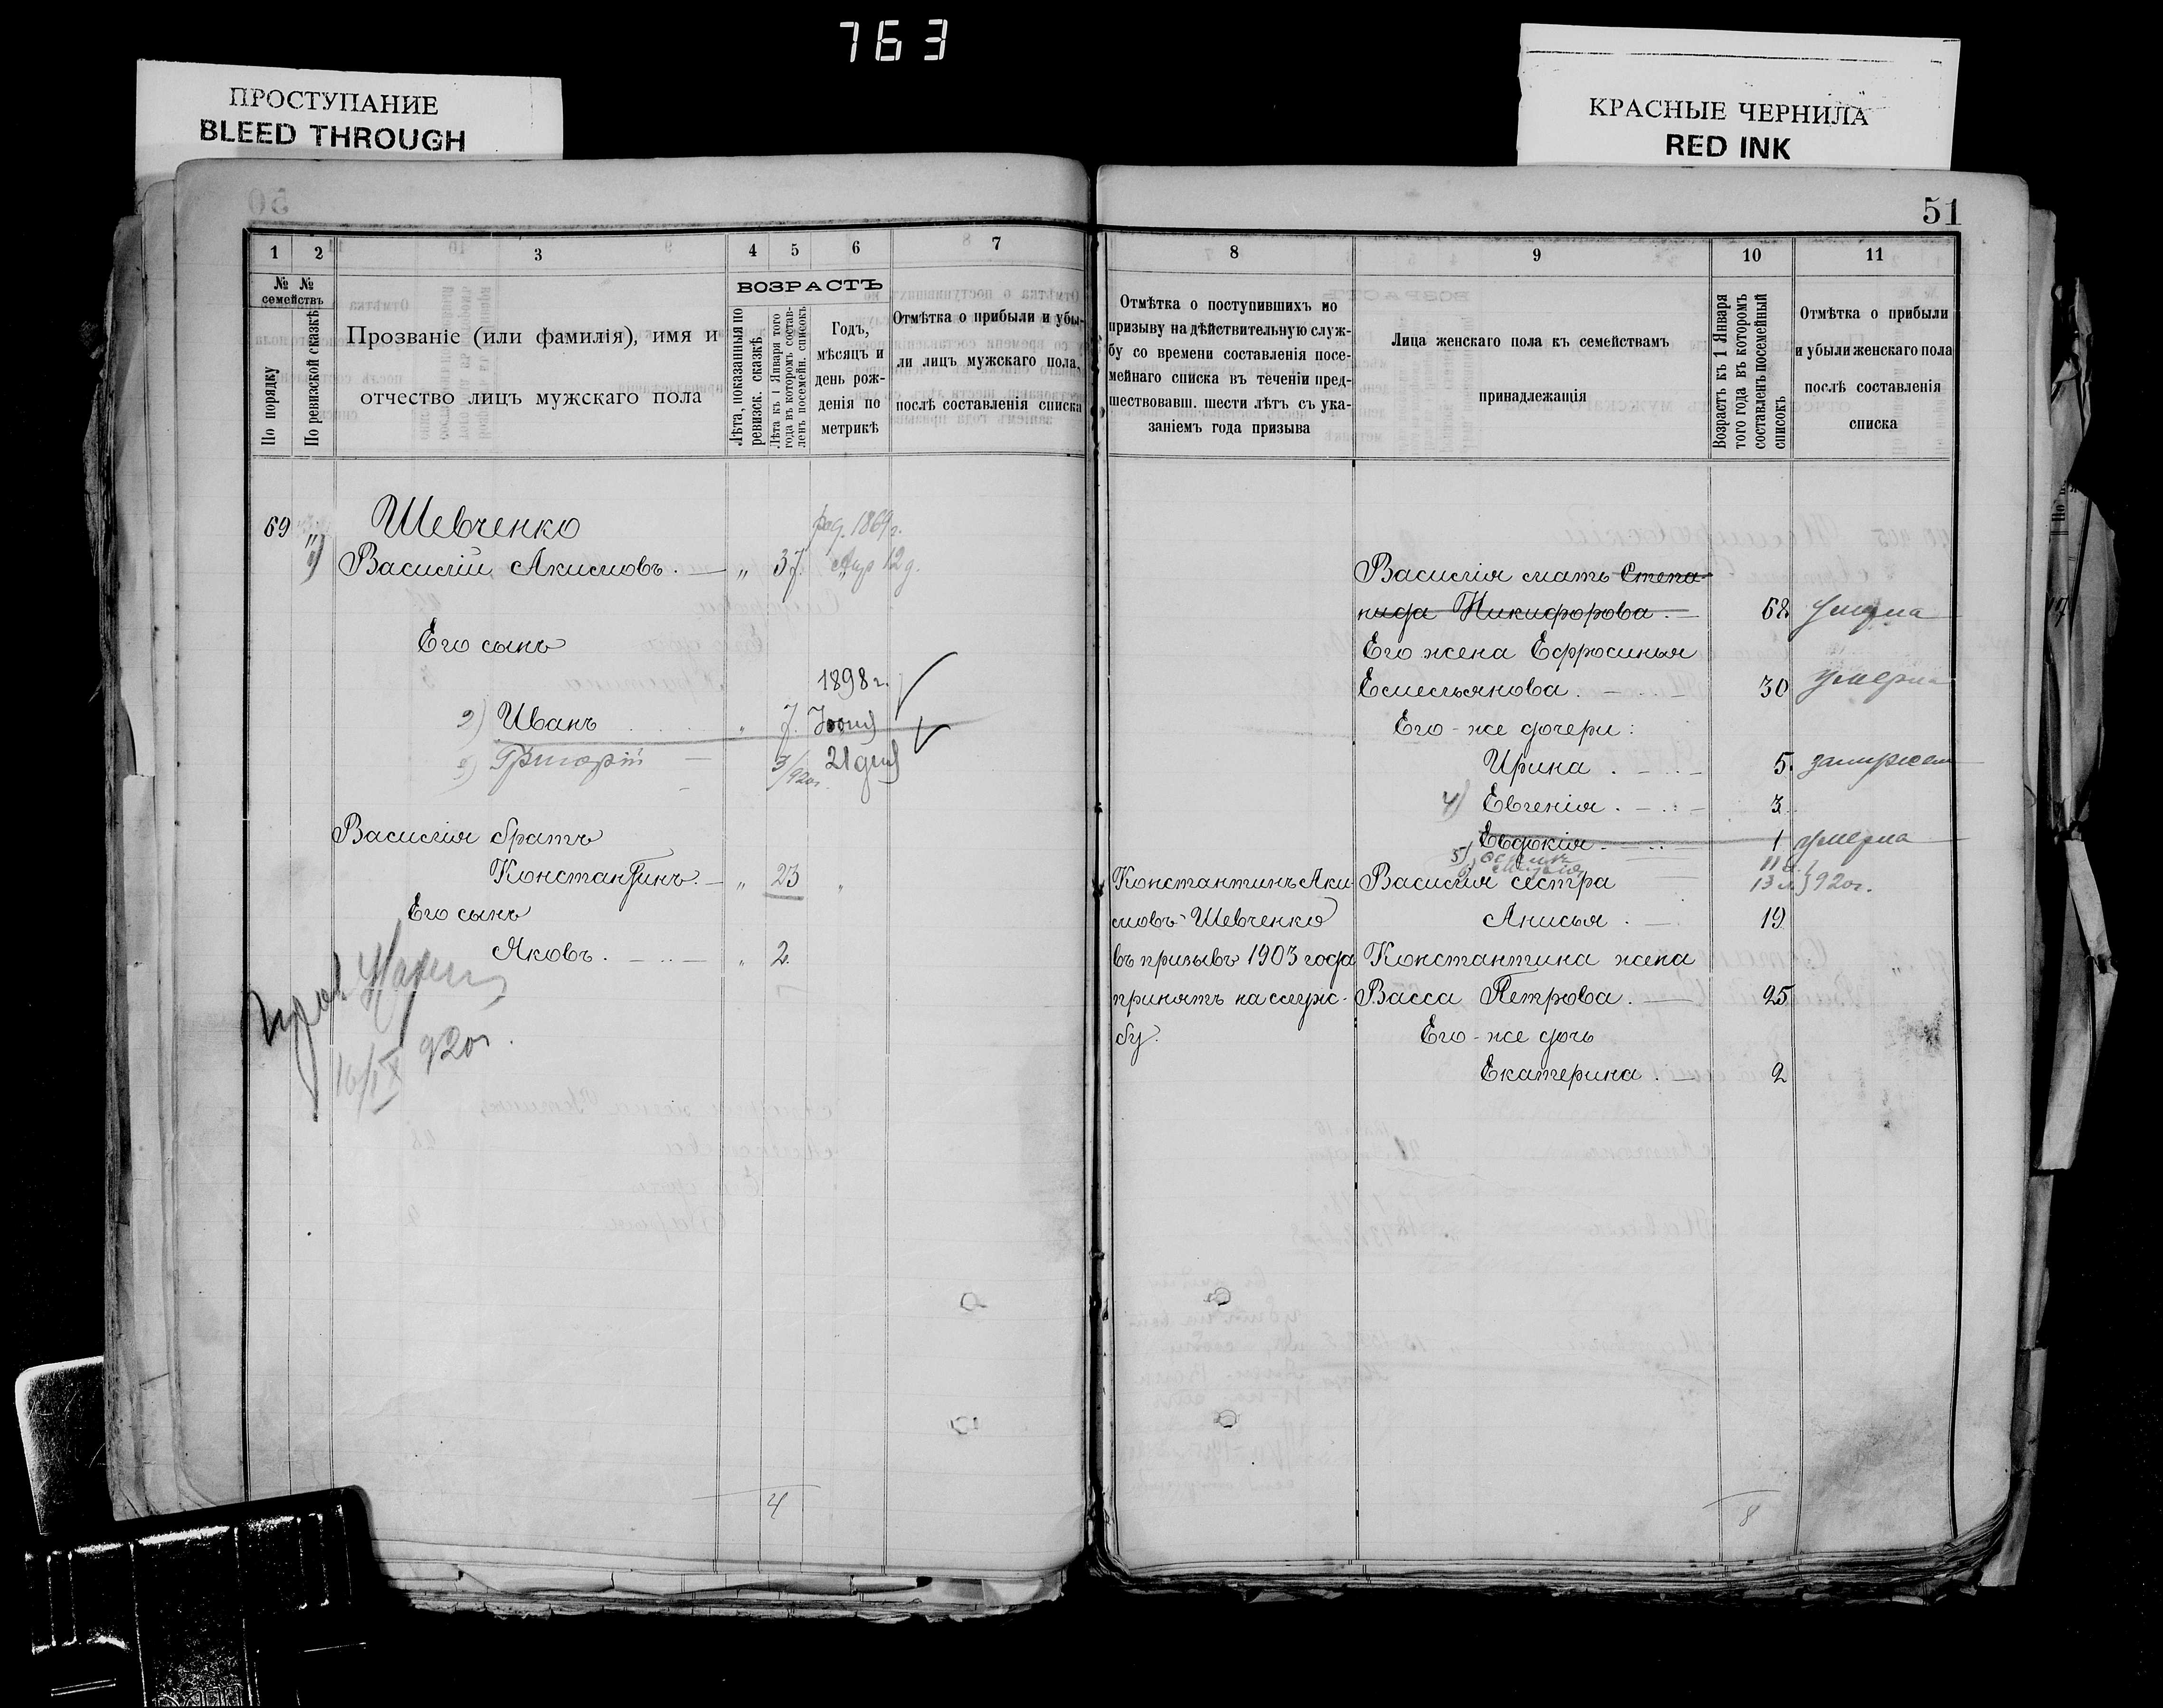 763
ПРОСТУПАНИЕ
BLEED THROUGH
КРАСНЫЕ ЧЕРНИЛА
RED INK
1 2 3 4 5 6 7
№ № семействъ
По порядку
По ревизской сказкѣ
Прозваніе (или фамилія), имя и
отчество лицъ мужскаго пола
ВОЗРАСТЪ
Лѣта, показанныя по
ревизск. сказкѣ
Лѣта къ 1 Января того
года въ которомъ состав-
ленъ посемейн. списокъ
Годъ,
мѣсяцъ и
день рож-
денія по
метрикѣ
Отмѣтка о прибыли и убы-
ли лицъ мужскаго пола,
послѣ составленія списка
69 " Шевченко род. 1869 г.
1) Василій Акимовъ. — " 37. Апр 12 д.
Его сынъ
1898 г.
2) Иванъ " 7. Іюня
Григорій — 3/920г. 21 дня
Василія братъ
Константинъ. — " 23 "
Его сынъ
Яковъ. — " 2.
16/IX 920г.
4
51
8 9 10 11
Отмѣтка о поступившихъ по
призыву на дѣйствительную служ-
бу со времени составленія посе-
мейнаго списка въ теченіи пред-
шествовавш. шести лѣтъ съ ука-
заніемъ года призыва
Лица женскаго пола къ семействамъ
принадлежащія
Возрастъ къ 1 Января
того года въ которомъ
составленъ посемейный
списокъ
Отмѣтка о прибыли
и убыли женскаго пола
послѣ составленія
списка
Василія мать Степа-
нида Никифорова. — 68 умерла
Его жена Ефросинья
Емельянова. — 30 умерла
Его-же дочери:
Ирина. — 5. замужем
4) Евгенія. — 3.
Евдокія. — 1 умерла
5)
6) 11 л.
13 л. } 920г.
Константинъ Аки-
мовъ Шевченко
въ призывъ 1903 года
принятъ на служ-
бу.
Василія сестра
Анисья. — 19
Константина жена
Васса Петрова. — 25
Его-же дочь
Екатерина. — 2
8